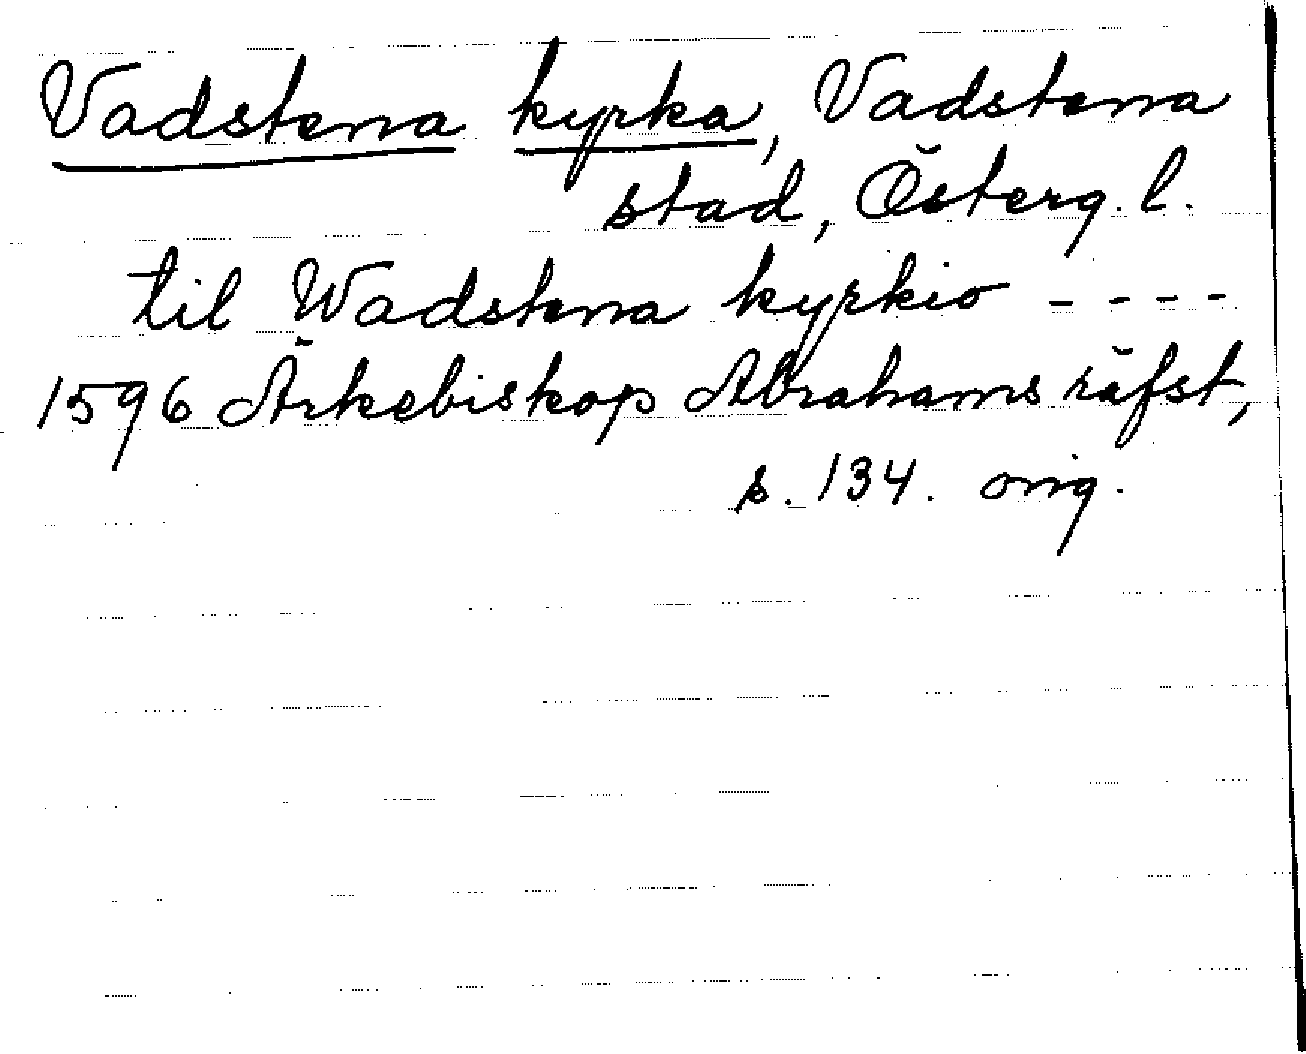 Vadstena kyrka, Vadstena
stad, Österg. l.
til Wadstena kyrkio - - - -
1596 Ärkebiskop Abrahams räfst,
s. 134. orig.